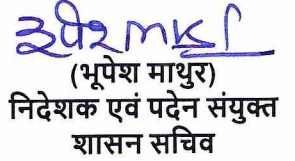 (भूपेश माथुर)
निदेशक एवं पदेन संयुक्त
शासन सचिव